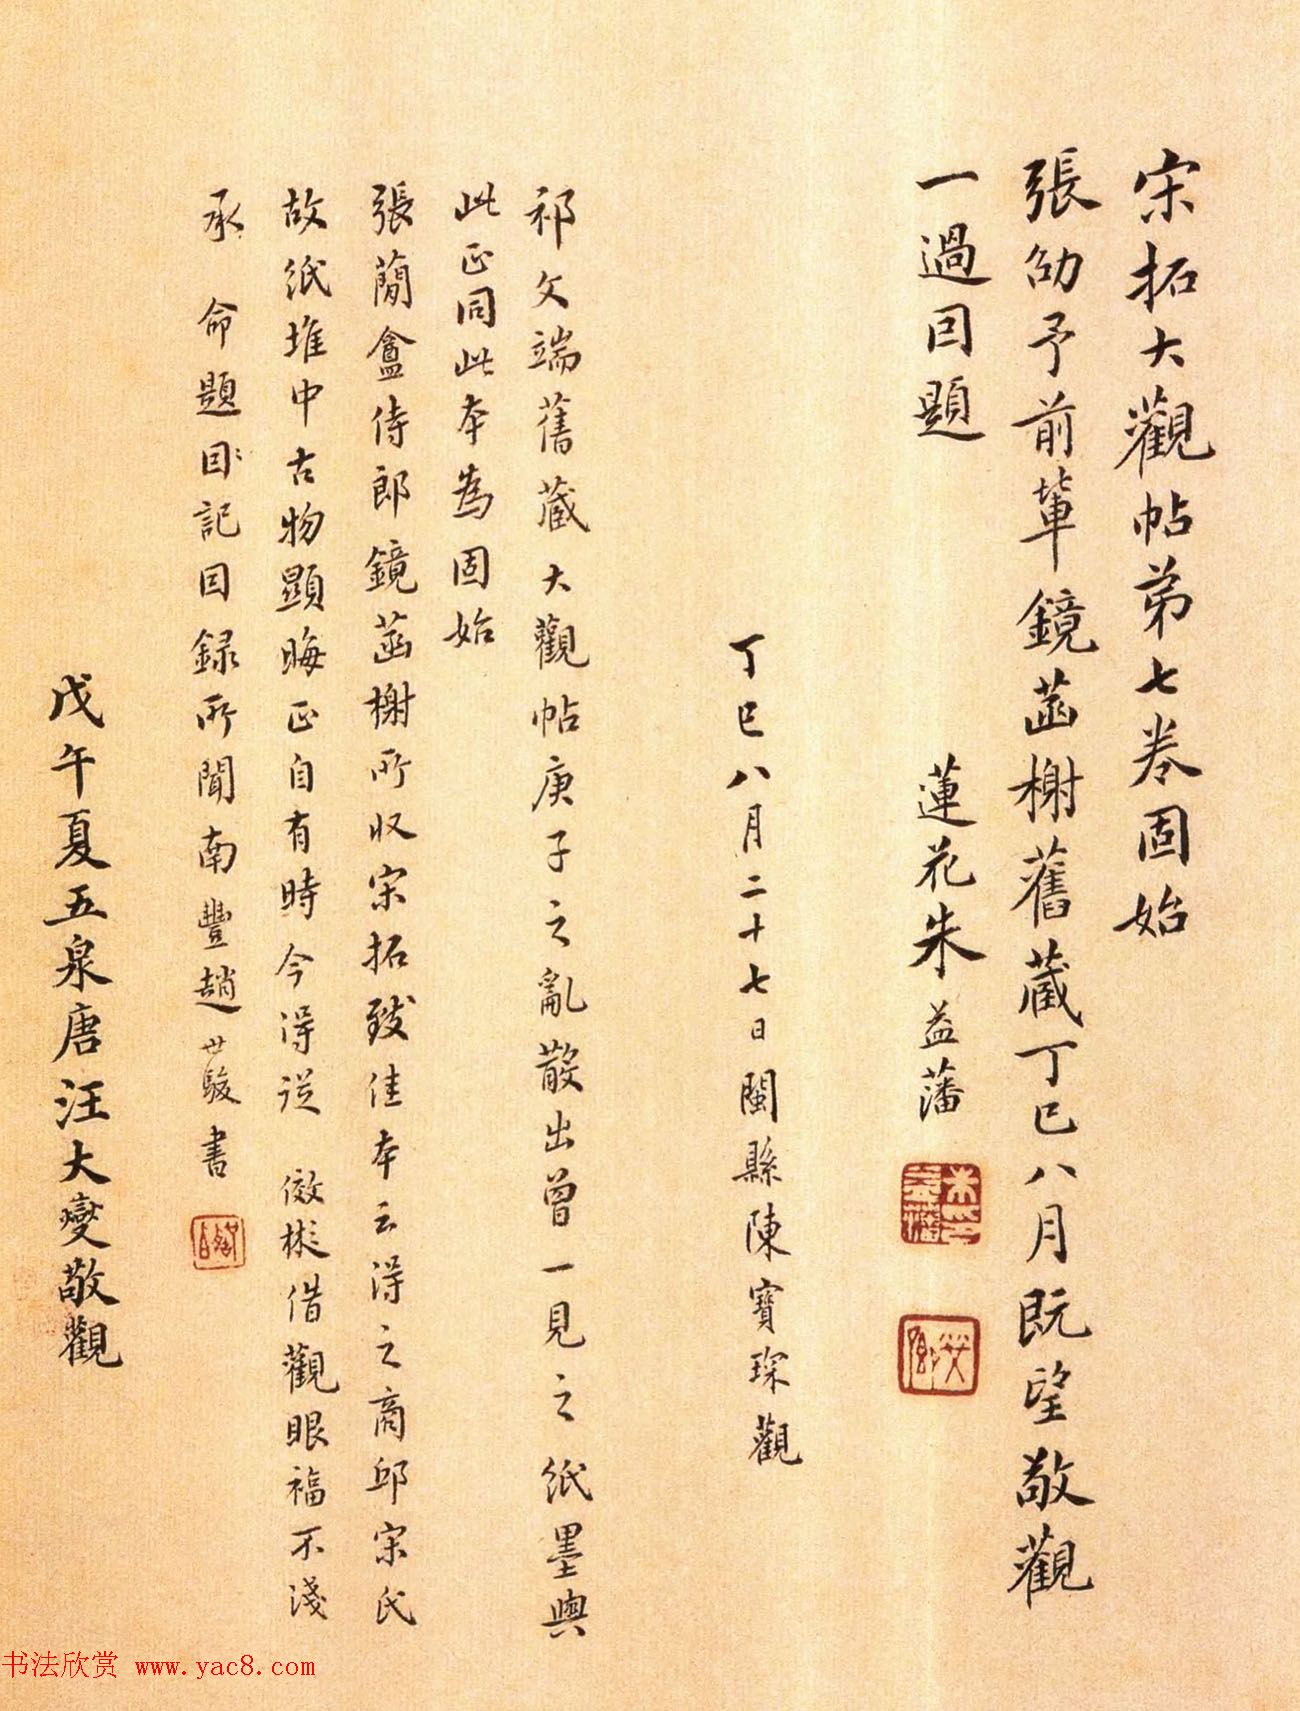 宋拓大觀帖第七卷固始
張幼予前軰鏡菡榭舊蔵丁巳八月既望敬觀
一過因題
蓮花朱益藩
丁巳八月二十七日閩縣陳寶琛觀
祁文端舊蔵大觀帖庚子之亂散出曾一見之紙墨與
此正同此本為固始
張蘭盦侍郎鏡菡榭所収宋拓致佳本云得之商邱宋氏
故紙堆中古物顯晦正自有時今得從 傚彬借觀眼福不淺
承 命題因記因録所聞南豐趙世駿書
戊午夏五泉唐汪大燮敬觀
书法欣赏 www.yac8.com